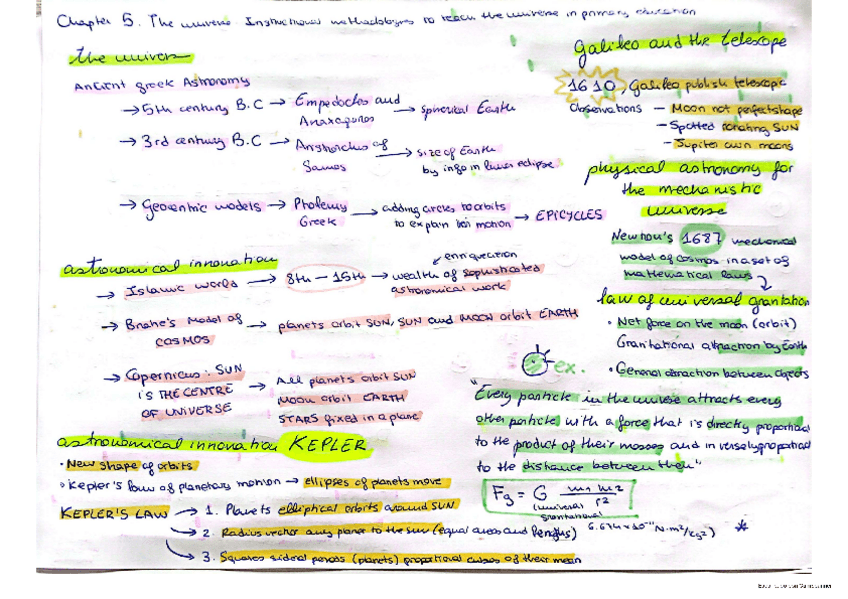 Chapter 5. The universe. Instructional methodologies to teach the universe in primary education
the univers
Ancient greek Astronomy
→ 5th century B.C → Empedocles and Anaxagoras → spherical Earth
→ 3rd century B.C → Aristarchus of Samos → size of Earth by info in lunar eclipse
→ Geocentric models → Ptolemy Greek → adding circles to orbits to explain motion → EPICYCLES
astronomical innovation
→ Islamic world → 8th - 15th → wealth of sophisticated astronomical work
→ Brahe's Model of COSMOS → planets orbit SUN, SUN and MOON orbit EARTH
→ Copernicus: SUN IS THE CENTRE OF UNIVERSE → All planets orbit SUN
Moon orbit EARTH
STARS fixed in a plane
astronomical innovation KEPLER
• New shape of orbits
• Kepler's law of planetary motion → ellipses of planets move
KEPLER'S LAW → 1. Planets elliptical orbits around SUN
→ 2. Radius vector any planet to the sun (equal areas and lengths)
→ 3. Squares sideral (planets) proportional cubes of their mean
Galileo and the telescope
1610, Galileo publish telescope
Observations - Moon not perfect shape
- Spotted rotating SUN
- Jupiter own moons
physical astronomy for
the mechanistic
universe
Newton's 1687 mechanical
model of cosmos in a set of
mathematical laws
law of universal gravitation
• Net force on the moon (orbit)
Gravitational attraction by Earth
• General attraction between objects
ex.
"Every particle in the universe attracts every
other particle with a force that is directly proportional
to the product of their masses and inversely proportional
to the distance between them"
Fg = G m1 m2 / r²
(universal gravitational
6.674x10⁻¹¹ N·m²/kg²) *